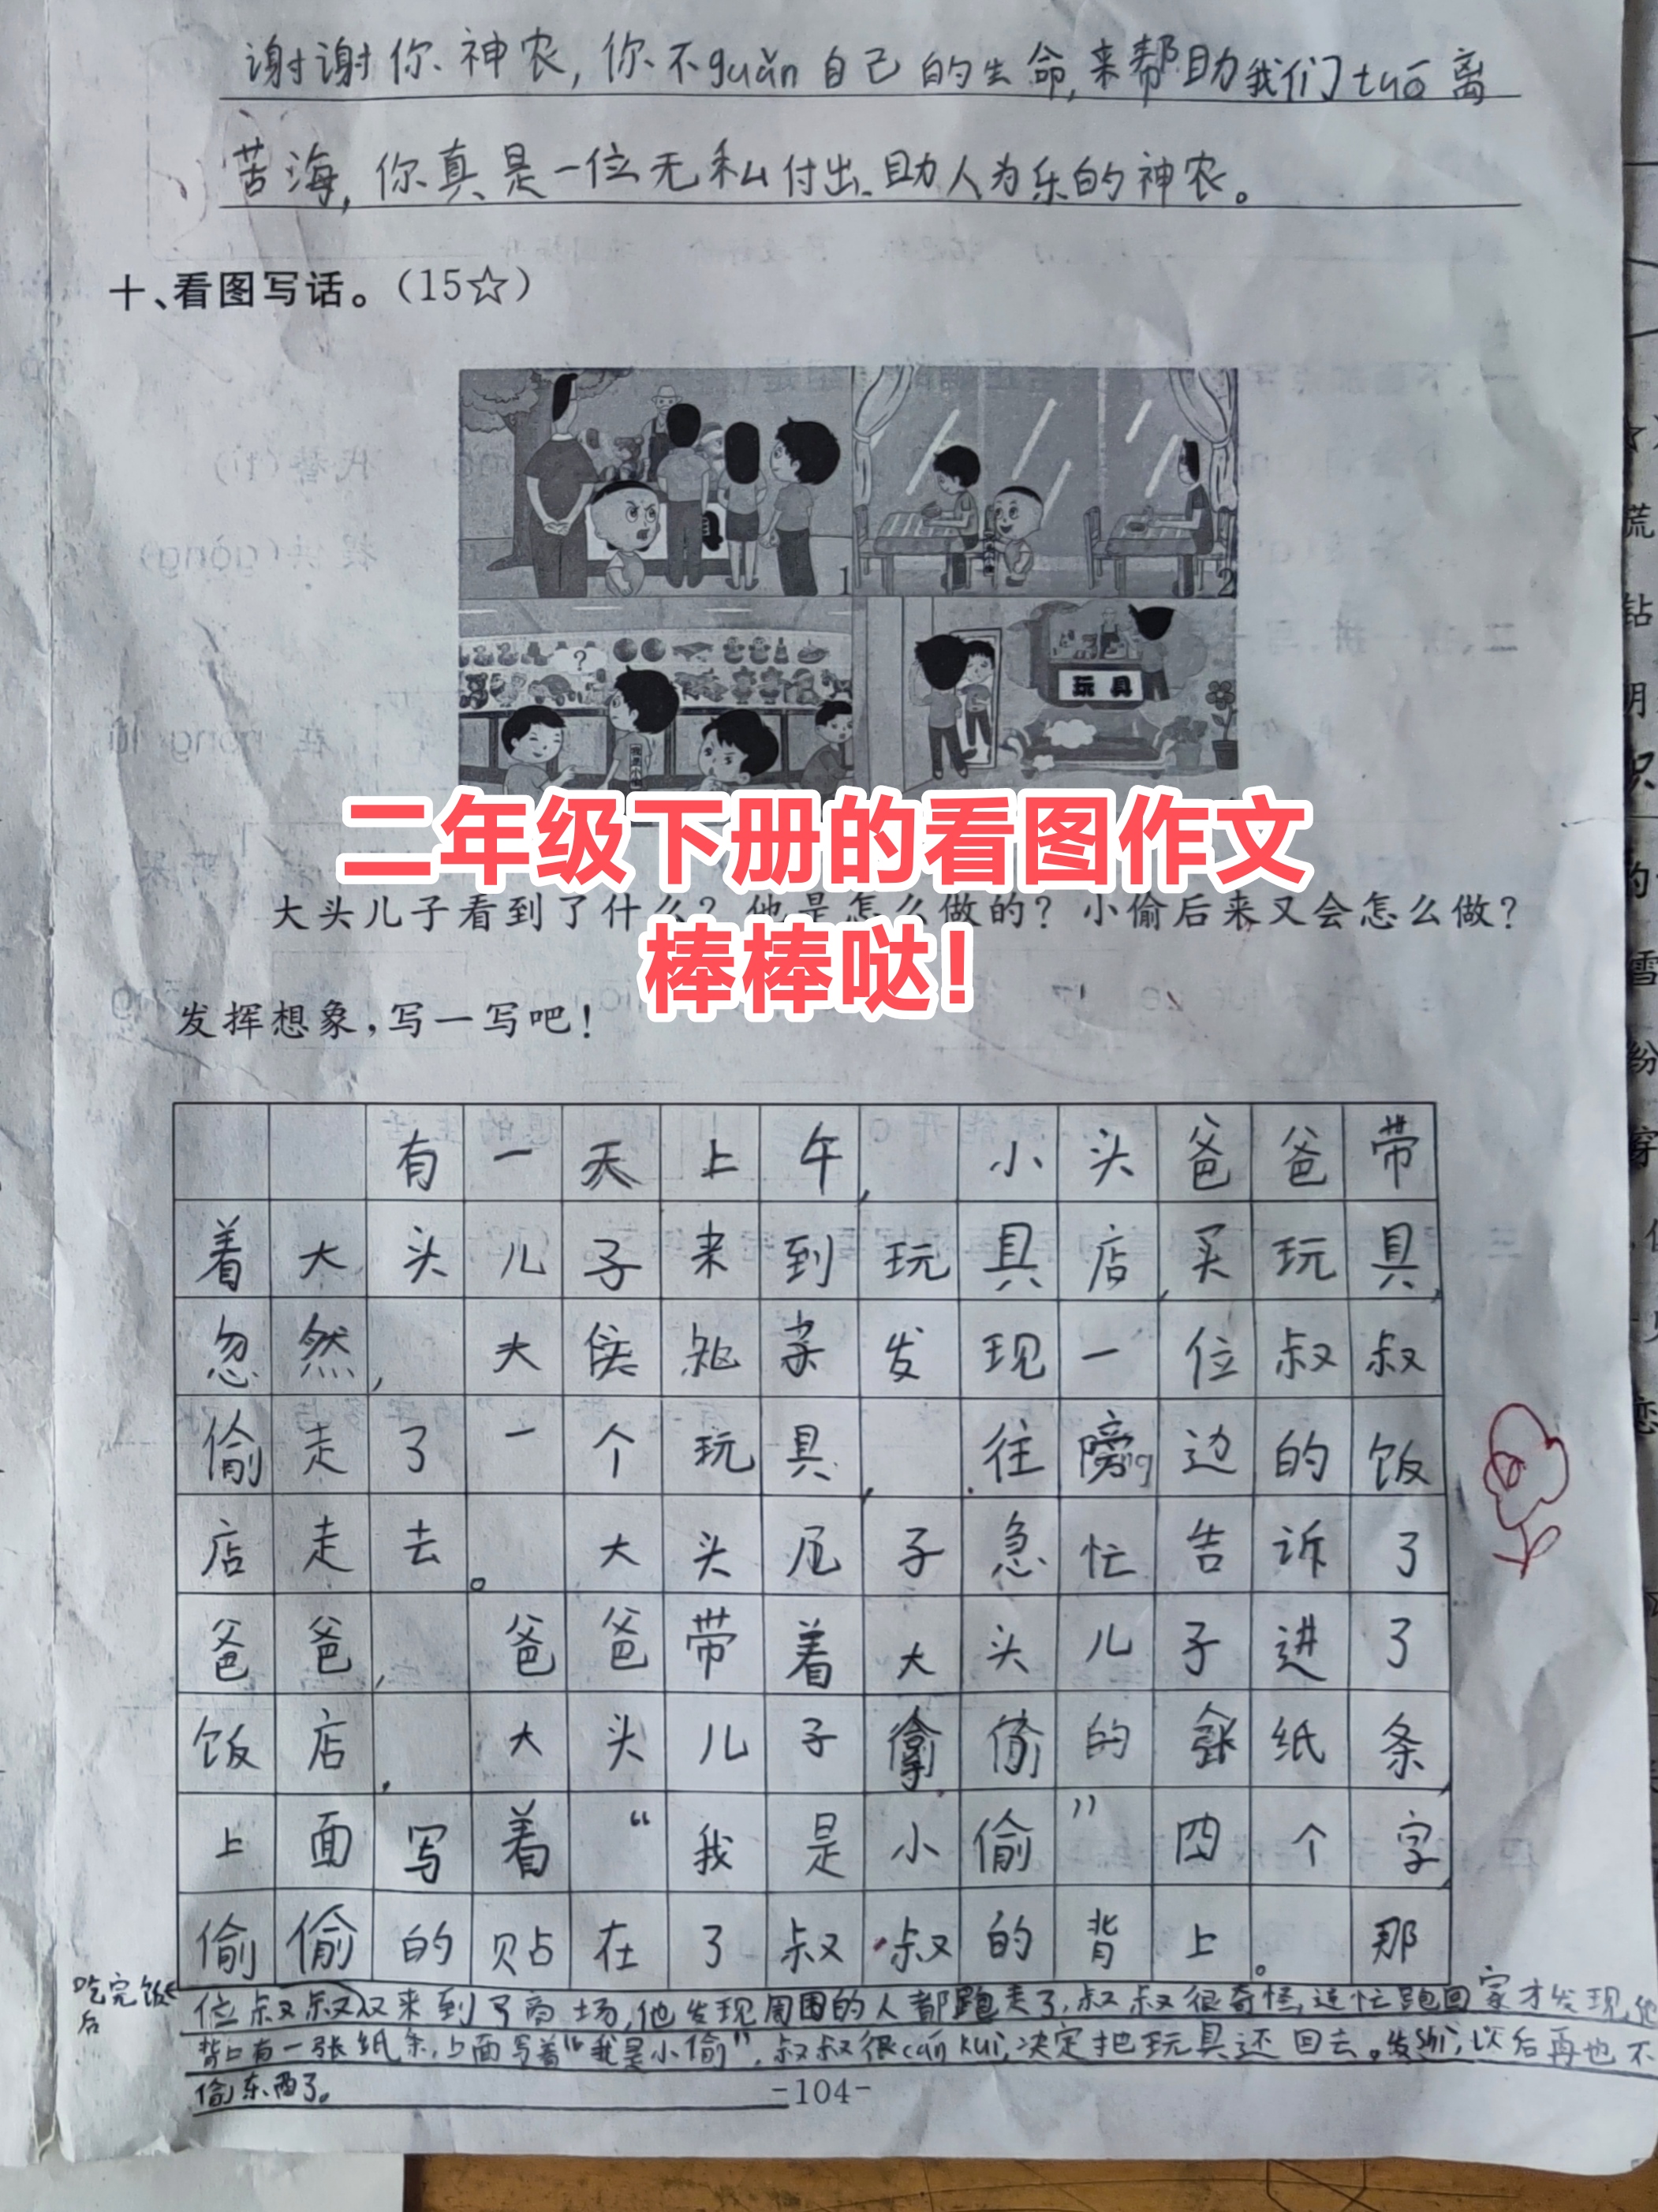 谢谢你神农,你不guǎn自己的生命,来帮助我们tuō离
苦海,你真是一位无私付出、助人为乐的神农。
十、看图写话。(15☆)
1
2
?
玩具
二年级下册的看图作文
大头儿子看到了什么?他是怎么做的?小偷后来又会怎么做?
棒棒哒!
发挥想象,写一写吧!
有一天上午,小头爸爸带
着大头儿子来到玩具店,买玩具,
忽然,大头儿子发现一位叔叔
偷走了一个玩具,往旁边的饭
店走去。大头儿子急忙告诉了
爸爸,爸爸带着大头儿子进了
饭店,大头儿子拿偷的张纸条,
上面写着“我是小偷”四个字,
偷偷的贴在了叔叔的背上。那
吃完饭后
位叔叔又来到了商场,他发现周围的人都跑走了,叔叔很奇怪,连忙跑回家才发现,他
背上有一张纸条,上面写着“我是小偷”,叔叔很cán kuì,决定把玩具还回去。发shì,以后再也不
偷东西了。
-104-